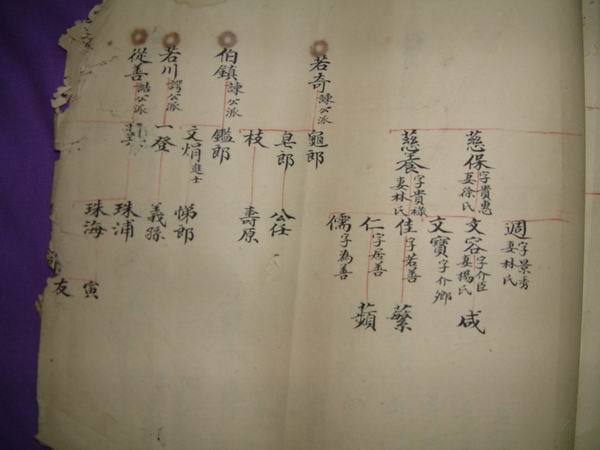 慈保字貴惠妻徐氏
慈養字貴祿妻林氏
週字景秀妻林氏
文容字介臣妻楊氏
文寶字介鄉
佳字若善
仁字居善
儒字為善
咸
蘩
蘋
若奇諫公派
伯鎮諫公派
若川諤公派
從善誥公派
龜郎
皂郎
枝
鑑郎
文焆進士
一登
公任
壽原
悌郎
義孫
珠浦
珠海
寅
友